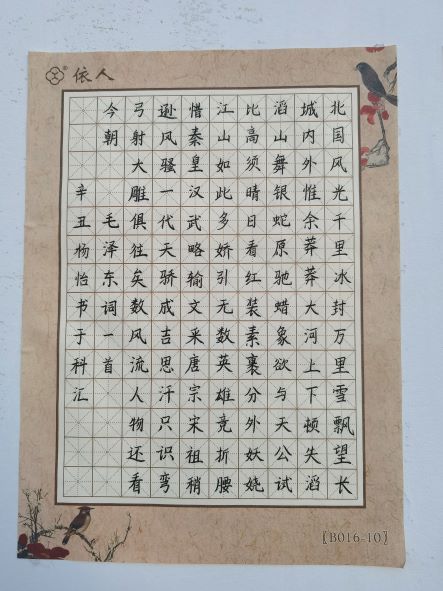 依人
北国风光千里冰封万里雪飘望长
城内外惟余莽莽大河上下顿失滔
滔山舞银蛇原驰蜡象欲与天公试
比高须晴日看红装素裹分外妖娆
江山如此多娇引无数英雄竞折腰
惜秦皇汉武略输文采唐宗宋祖稍
逊风骚一代天骄成吉思汗只识弯
弓射大雕俱往矣数风流人物还看
今朝 毛泽东词一首
辛丑杨怡书于科汇
【B016-10】